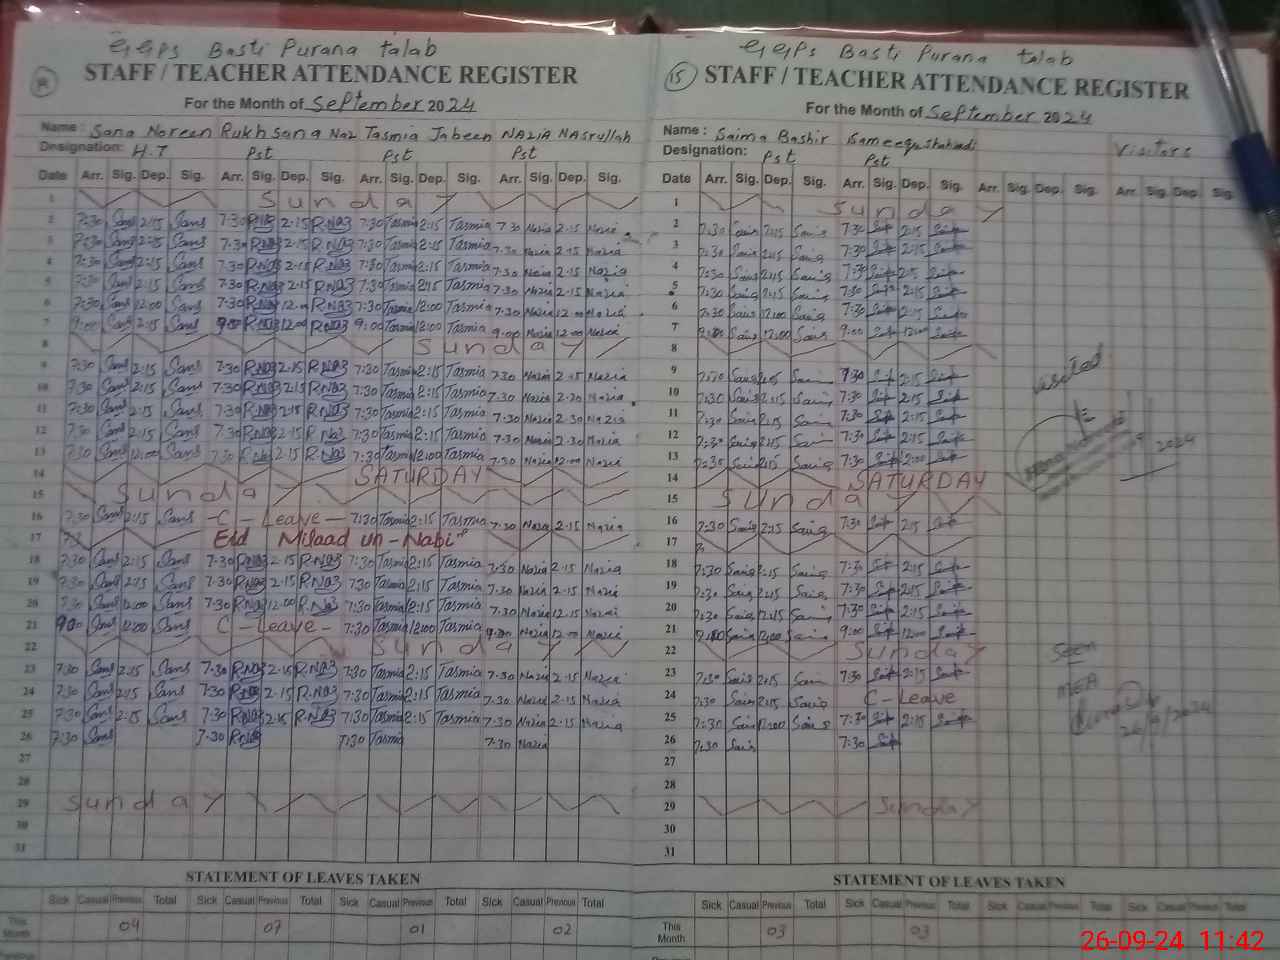 GGPS Basti Purana talab
STAFF / TEACHER ATTENDANCE REGISTER
For the Month of September 2024
Name : Sana Noreen Rukhsana Naz Tasmia Jabeen NAZIA NASrullah
Designation: H.T Pst Pst Pst
Date Arr. Sig. Dep. Sig. Arr. Sig. Dep. Sig. Arr. Sig. Dep. Sig. Arr. Sig. Dep. Sig.
1 Sunday
2 7:30 Sana 2:15 Sana 7:30 R.Naz 2.15 R.Naz 7:30 Tasmia 2:15 Tasmia 7.30 Nazia 2.15 Nazia
3 7:30 Sana 2:15 Sana 7:30 R.Naz 2.15 R.Naz 7:30 Tasmia 2:15 Tasmia 7.30 Nazia 2.15 Nazia
4 7:30 Sana 2:15 Sana 7:30 R.Naz 2.15 R.Naz 7:30 Tasmia 2:15 Tasmia 7.30 Nazia 2.15 Nazia
5 7:30 Sana 2:15 Sana 7:30 R.Naz 2.15 R.Naz 7:30 Tasmia 2:15 Tasmia 7.30 Nazia 2.15 Nazia
6 7:30 Sana 12:00 Sana 7:30 R.Naz 12.00 R.Naz 7:30 Tasmia 12:00 Tasmia 7.30 Nazia 12.00 Nazia
7 9:00 Sana 2:15 Sana 9:00 R.Naz 12:00 R.Naz 9:00 Tasmia 12:00 Tasmia 9.00 Nazia 12.00 Nazia
8 Sunday
9 7:30 Sana 2:15 Sana 7:30 R.Naz 2.15 R.Naz 7:30 Tasmia 2:15 Tasmia 7.30 Nazia 2.15 Nazia
10 7:30 Sana 2:15 Sana 7:30 R.Naz 2.15 R.Naz 7:30 Tasmia 2:15 Tasmia 7.30 Nazia 2.20 Nazia
11 7:30 Sana 2:15 Sana 7:30 R.Naz 2:15 R.Naz 7:30 Tasmia 2:15 Tasmia 7.30 Nazia 2.30 Nazia
12 7:30 Sana 2:15 Sana 7:30 R.Naz 2.15 R.Naz 7:30 Tasmia 2:15 Tasmia 7.30 Nazia 2.30 Nazia
13 7:30 Sana 12:00 Sana 7:30 R.Naz 2.15 R.Naz 7:30 Tasmia 12:00 Tasmia 7.30 Nazia 12.00 Nazia
14 SATURDAY
15 Sunday
16 7:30 Sana 2:15 Sana -C-Leave- 7:30 Tasmia 2:15 Tasmia 7.30 Nazia 2.15 Nazia
17 Eid Milaad un-Nabi
18 7:30 Sana 2:15 Sana 7:30 R.Naz 2.15 R.Naz 7:30 Tasmia 2:15 Tasmia 7.30 Nazia 2.15 Nazia
19 7:30 Sana 2:15 Sana 7:30 R.Naz 2.15 R.Naz 7:30 Tasmia 2:15 Tasmia 7.30 Nazia 2.15 Nazia
20 7:30 Sana 12:00 Sana 7:30 R.Naz 12.00 R.Naz 7:30 Tasmia 2:15 Tasmia 7.30 Nazia 2.15 Nazia
21 9:00 Sana 12:00 Sana C-Leave- 7:30 Tasmia 12:00 Tasmia 9.00 Nazia 12.00 Nazia
22 Sunday
23 7:30 Sana 2:15 Sana 7.30 R.Naz 2.15 R.Naz 7:30 Tasmia 2:15 Tasmia 7.30 Nazia 2.15 Nazia
24 7:30 Sana 2:15 Sana 7:30 R.Naz 2.15 R.Naz 7:30 Tasmia 2:15 Tasmia 7.30 Nazia 2.15 Nazia
25 7:30 Sana 2:15 Sana 7:30 R.Naz 2.15 R.Naz 7:30 Tasmia 2:15 Tasmia 7.30 Nazia 2.15 Nazia
26 7:30 Sana 7.30 R.Naz 7:30 Tasmia 7.30 Nazia
27
28
29 Sunday
30
31
STATEMENT OF LEAVES TAKEN
Sick Casual Previous Total Sick Casual Previous Total Sick Casual Previous Total Sick Casual Previous Total
This Month 04 07 01 02
GGPS Basti Purana talab
15 STAFF / TEACHER ATTENDANCE REGISTER
For the Month of September 2024
Name : Saima Bashir Visitors
Designation: Pst Pst
Date Arr. Sig. Dep. Sig. Arr. Sig. Dep. Sig. Arr. Sig. Dep. Sig. Arr. Sig. Dep. Sig.
1 Sunday
2 7:30 Saima 2:15 Saima 7:30 2:15
3 7:30 Saima 2:15 Saima 7:30 2:15
4 7:30 Saima 2:15 Saima 7:30 2:15
5 7:30 Saima 2:15 Saima 7:30 2:15
6 7:30 Saima 12:00 Saima 7:30 2:15
7 Saima 12:00 Saima 9:00 12:00
8
9 7:30 Saima 2:15 Saima 7:30 2:15 visited
10 7:30 Saima 2:15 Saima 7:30 2:15
11 7:30 Saima 2:15 Saima 7:30 2:15
12 7:30 Saima 2:15 Saima 7:30 2:15 2024
13 7:30 Saima 2:15 Saima 7:30 2:00
14 SATURDAY
15 Sunday
16 7:30 Saima 2:15 Saima 7:30 2:15
17
18 7:30 Saima 2:15 Saima 7:30 2:15
19 7:30 Saima 2:15 Saima 7:30 2:15
20 7:30 Saima 2:15 Saima 7:30 2:15
21 Saima 12:00 Saima 9:00 12:00
22 Sunday Seen
23 7:30 Saima 2:15 Saima 7:30 2:15
24 7:30 Saima 2:15 Saima C-Leave MEA
25 7:30 Saima 12:00 Saima 7:30 2:15 26/9/2024
26 7:30 Saima 7:30
27
28
29 Sunday
30
31
STATEMENT OF LEAVES TAKEN
Sick Casual Previous Total Sick Casual Previous Total Sick Casual Previous Total Sick Casual Previous Total
This Month 03 03
26-09-24 11:42